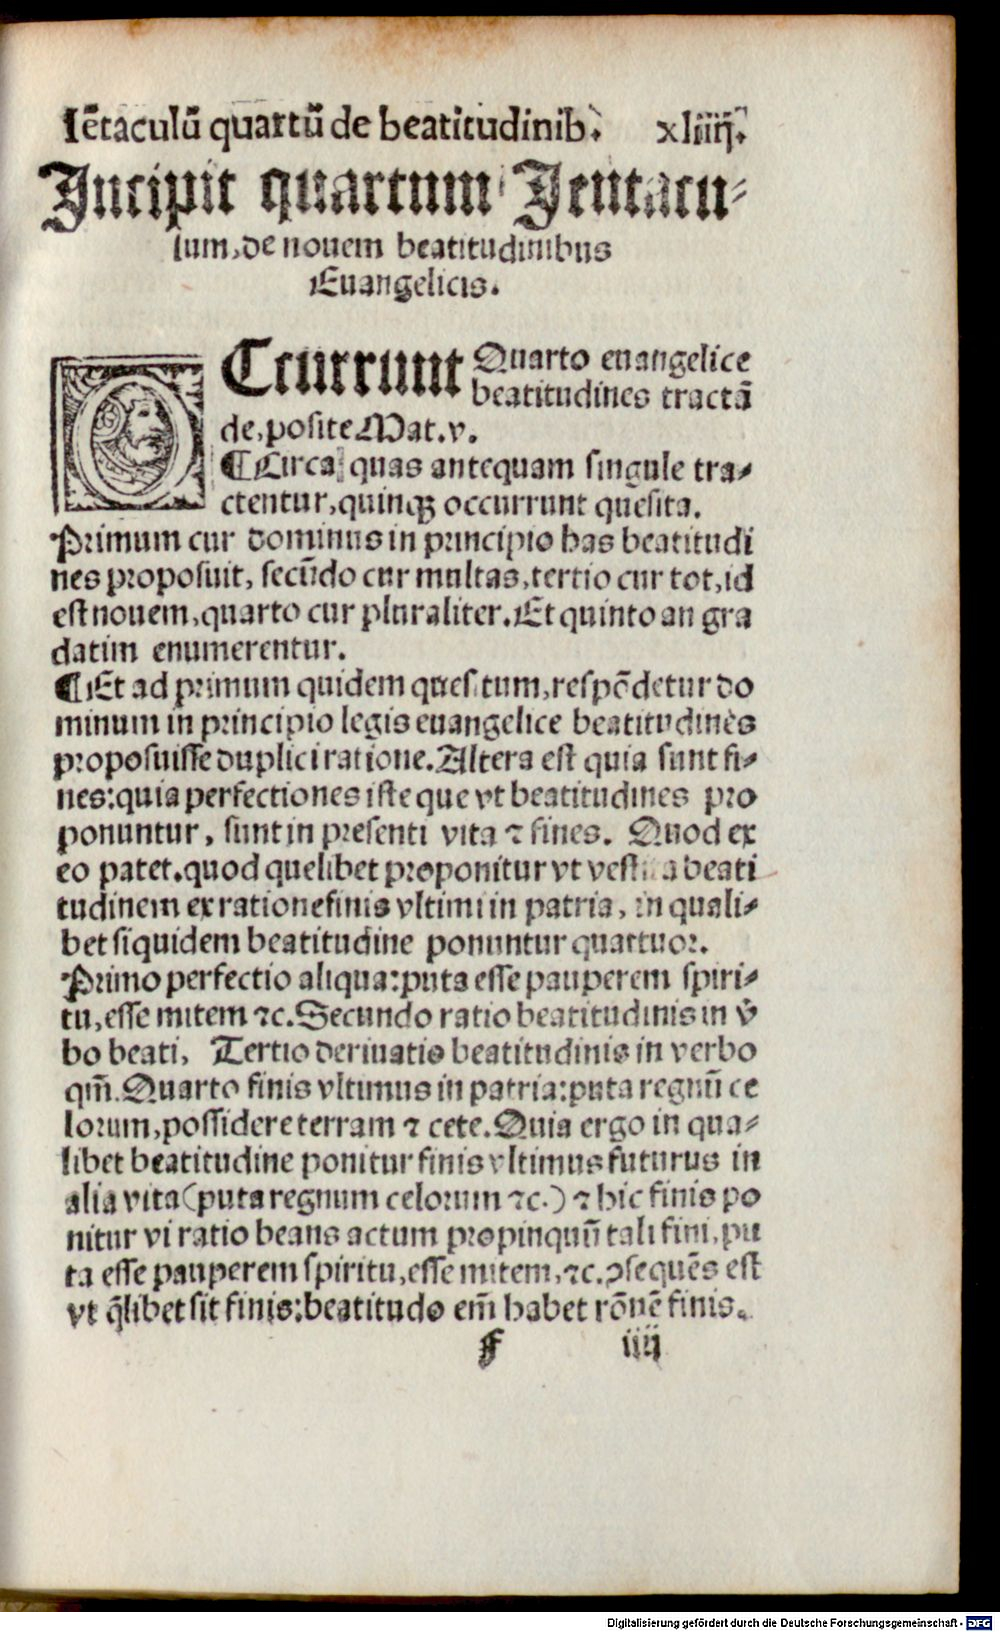 Iẽtaculũ quartũ de beatitudinib. xliiij.
Incipit quartum Jentacu⸗
lum, de nouem beatitudinibus
Euangelicis.
OCcurrunt Quarto euangelice
beatitudines tractã
de, posite Mat. v.
¶ Circa quas antequam singule tra⸗
ctentur, quinqꝫ occurrunt quesita.
Primum cur dominus in principio has beatitudi
nes proposuit, secũdo cur multas, tertio cur tot, id
est nouem, quarto cur pluraliter. Et quinto an gra
datim enumerentur.
¶ Et ad primum quidem quesitum, respõdetur do
minum in principio legis euangelice beatitudines
proposuisse duplici ratione. Altera est quia sunt fi⸗
nes: quia perfectiones iste que vt beatitudines pro
ponuntur, sunt in presenti vita ⁊ fines. Quod ex
eo patet. quod quelibet proponitur vt a beati
tudinem ex ratione finis vltimi in patria, in quali⸗
bet siquidem beatitudine ponuntur quattuor.
Primo perfectio aliqua: puta esse pauperem spiri⸗
tu, esse mitem ⁊c. Secundo ratio beatitudinis in v̾
bo beati, Tertio deriuatis beatitudinis in verbo
qm̃. Quarto finis vltimus in patria: puta regnũ ce
lorum, possidere terram ⁊ cete. Quia ergo in qua⸗
libet beatitudine ponitur finis vltimus futurus in
alia vita (puta regnum celorum ⁊c.) ⁊ hic finis po
nitur vi ratio beans actum propinquũ tali fini, pu
ta esse pauperem spiritu, esse mitem, ⁊c. ꝯsequẽs est
vt q̃libet sit finis: beatitudo em̃ habet rõnẽ finis.
f iiij
Digitalisierung gefördert durch die Deutsche Forschungsgemeinschaft - DFG